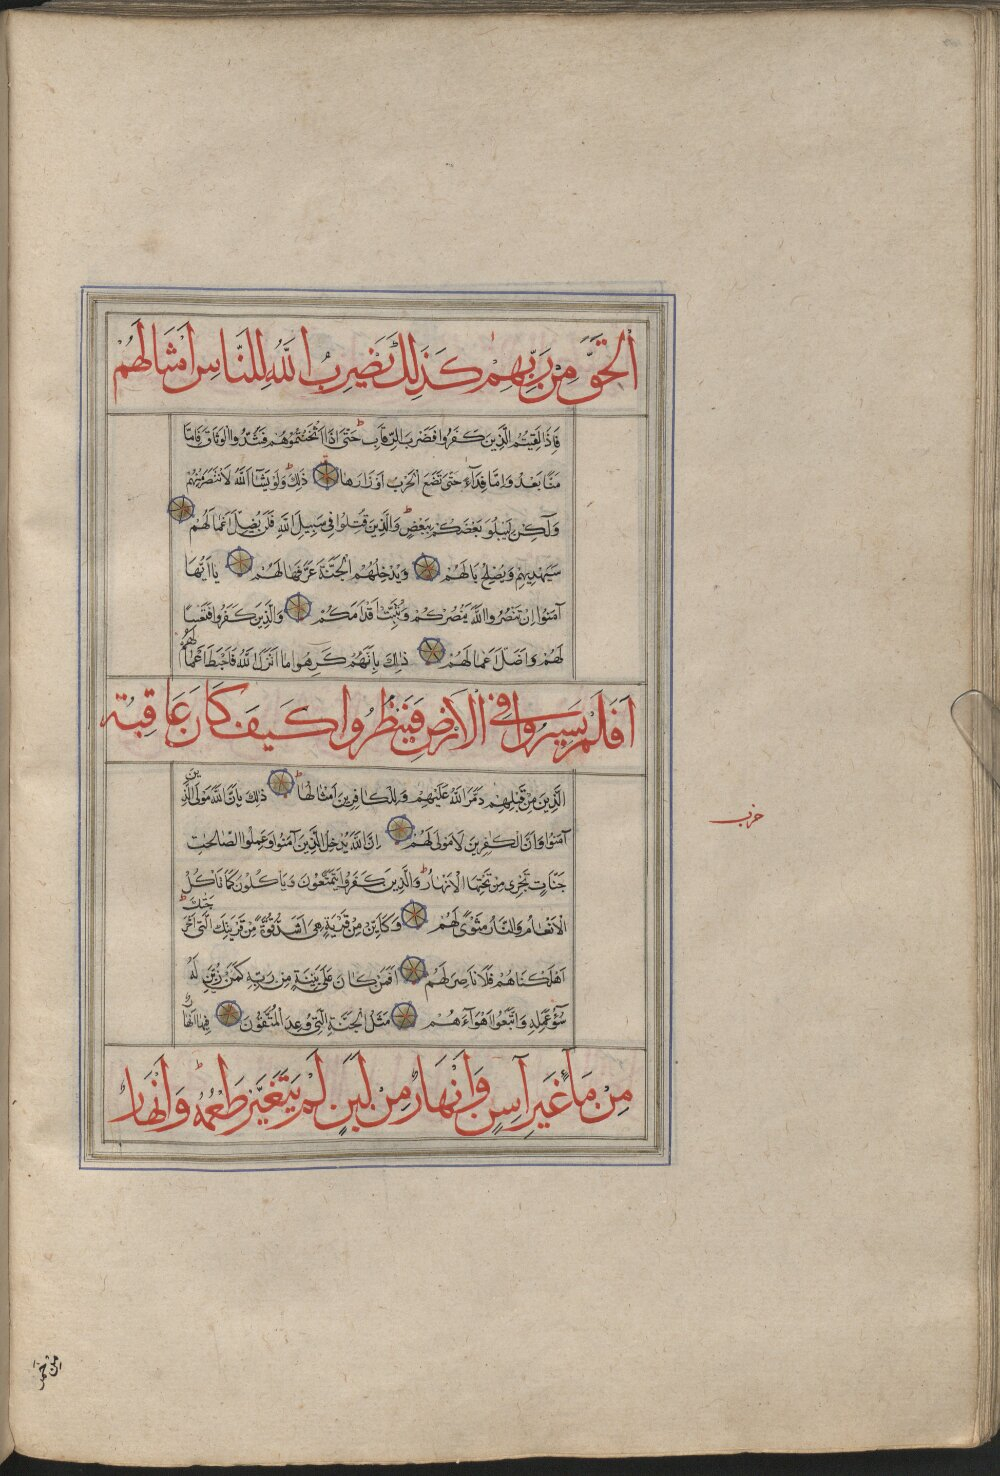 اَلْحَقَّ مِنْ رَبِّهِمْ كَذَلِكَ يَضْرِبُ اللَّهُ لِلنَّاسِ اَمْثَالَهُمْ
فَاِذَا لَقِيتُمُ الَّذِينَ كَفَرُوا فَضَرْبَ الرِّقَابِ حَتَّى اِذَا اَثْخَنْتُمُوهُمْ فَشُدُّوا الْوَثَاقَ فَاِمَّا
مَنًّا بَعْدُ وَاِمَّا فِدَآءً حَتَّى تَضَعَ الْحَرْبُ اَوْزَارَهَا ذَلِكَ وَلَوْ يَشَآءُ اللَّهُ لَانْتَصَرَ مِنْهُمْ
وَلَكِنْ لِيَبْلُوَ بَعْضَكُمْ بِبَعْضٍ وَالَّذِينَ قُتِلُوا فِي سَبِيلِ اللَّهِ فَلَنْ يُضِلَّ اَعْمَالَهُمْ
سَيَهْدِيهِمْ وَيُصْلِحُ بَالَهُمْ وَيُدْخِلُهُمُ الْجَنَّةَ عَرَّفَهَا لَهُمْ يَا اَيُّهَا
آمَنُوا اِنْ تَنْصُرُوا اللَّهَ يَنْصُرْكُمْ وَيُثَبِّتْ اَقْدَامَكُمْ وَالَّذِينَ كَفَرُوا فَتَعْسًا
لَهُمْ وَاَضَلَّ اَعْمَالَهُمْ ذَلِكَ بِاَنَّهُمْ كَرِهُوا مَا اَنْزَلَ اللَّهُ فَاَحْبَطَ اَعْمَالَهُمْ
اَفَلَمْ يَسِيرُوا فِي الْاَرْضِ فَيَنْظُرُوا كَيْفَ كَانَ عَاقِبَةُ
الَّذِينَ مِنْ قَبْلِهِمْ دَمَّرَ اللَّهُ عَلَيْهِمْ وَلِلْكَافِرِينَ اَمْثَالُهَا ذَلِكَ بِاَنَّ اللَّهَ مَوْلَى الَّذِينَ
آمَنُوا وَاَنَّ الْكَافِرِينَ لَا مَوْلَى لَهُمْ اِنَّ اللَّهَ يُدْخِلُ الَّذِينَ آمَنُوا وَعَمِلُوا الصَّالِحَاتِ
جَنَّاتٍ تَجْرِي مِنْ تَحْتِهَا الْاَنْهَارُ وَالَّذِينَ كَفَرُوا يَتَمَتَّعُونَ وَيَاْكُلُونَ كَمَا تَاْكُلُ
الْاَنْعَامُ وَالنَّارُ مَثْوًى لَهُمْ وَكَاَيِّنْ مِنْ قَرْيَةٍ هِيَ اَشَدُّ قُوَّةً مِنْ قَرْيَتِكَ الَّتِي اَخْرَجَتْكَ
اَهْلَكْنَاهُمْ فَلَا نَاصِرَ لَهُمْ اَفَمَنْ كَانَ عَلَى بَيِّنَةٍ مِنْ رَبِّهِ كَمَنْ زُيِّنَ لَهُ
سُوٓءُ عَمَلِهِ وَاتَّبَعُوا اَهْوَآءَهُمْ مَثَلُ الْجَنَّةِ الَّتِي وُعِدَ الْمُتَّقُونَ فِيهَا اَنْهَارٌ
مِنْ مَآءٍ غَيْرِ آسِنٍ وَاَنْهَارٌ مِنْ لَبَنٍ لَمْ يَتَغَيَّرْ طَعْمُهُ وَاَنْهَارٌ
حزب
مِنْ خَمْرٍ